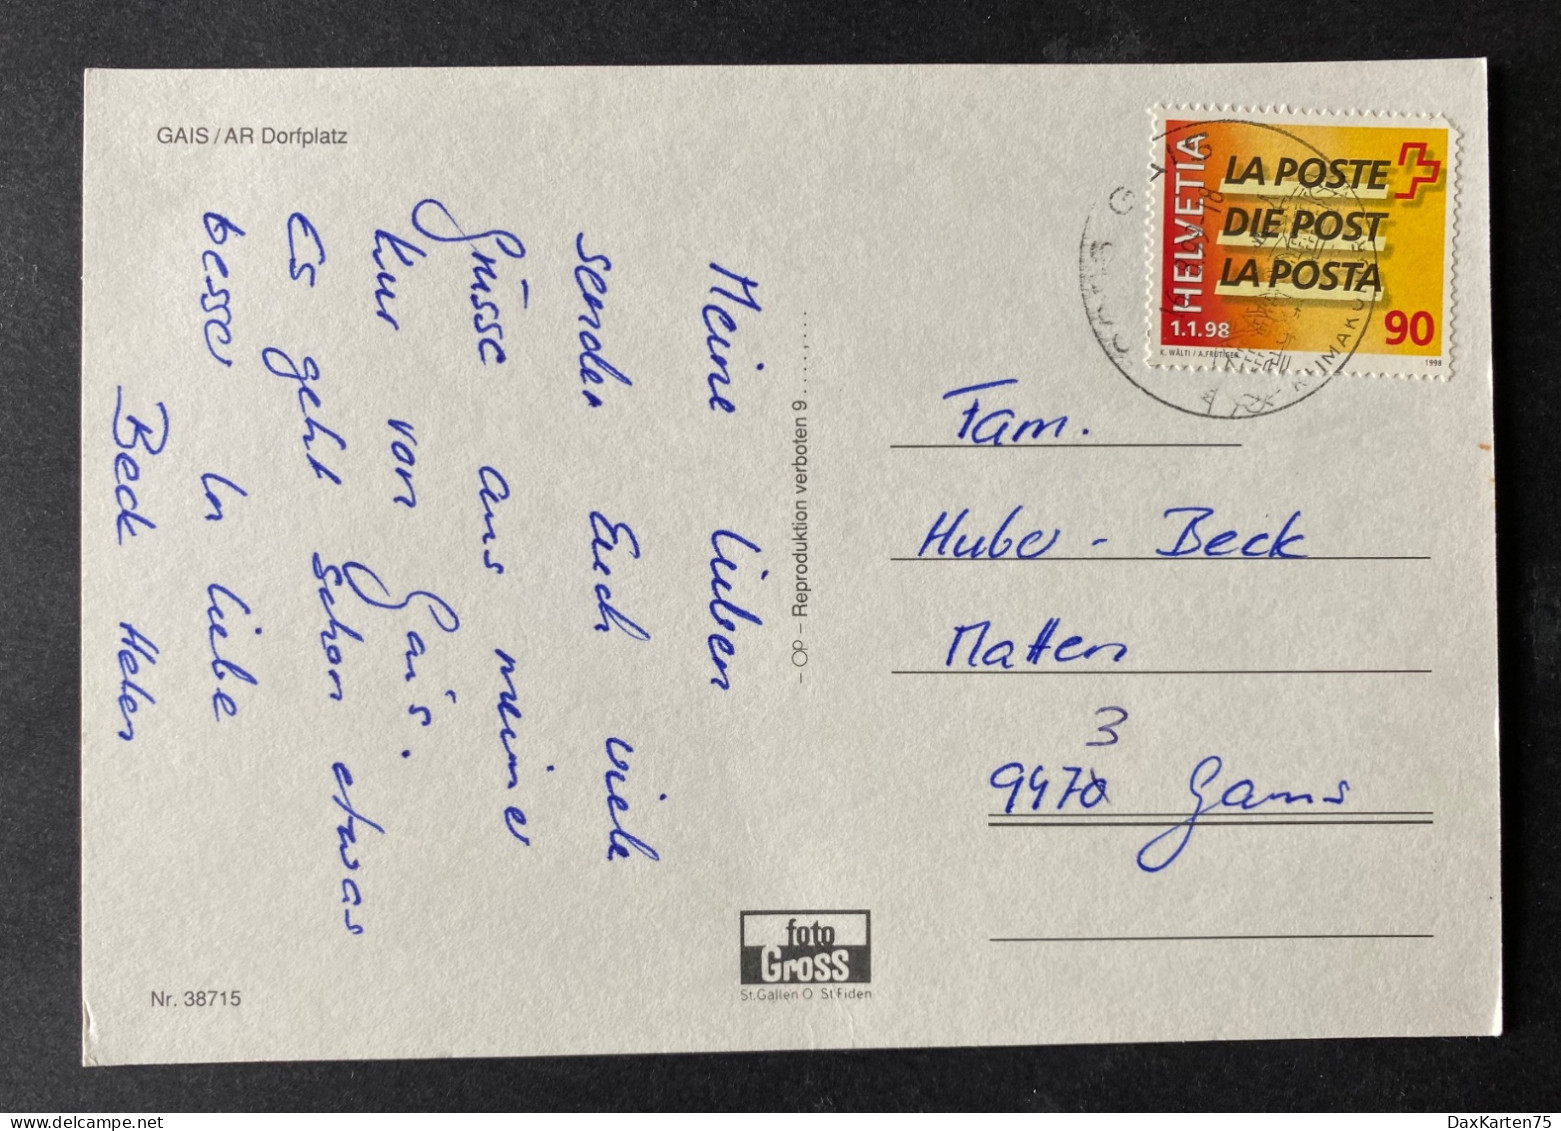 GAIS / AR Dorfplatz
Meine lieben
sender Euch viele
Grüsse aus meiner
Kur von Gais.
Es geht schon etwas
besser In liebe
Beck Helen
– OP – Reproduktion verboten 9
HELVETIA
LA POSTE
DIE POST
LA POSTA
1.1.98
90
K. WÄLTI / A. FRUTIGER
1998
Fam.
Huber - Beck
Matten
3
9470 Gams
foto
Gross
St.Gallen O St.Fiden
Nr. 38715
DaxKarten75
delcampe.net